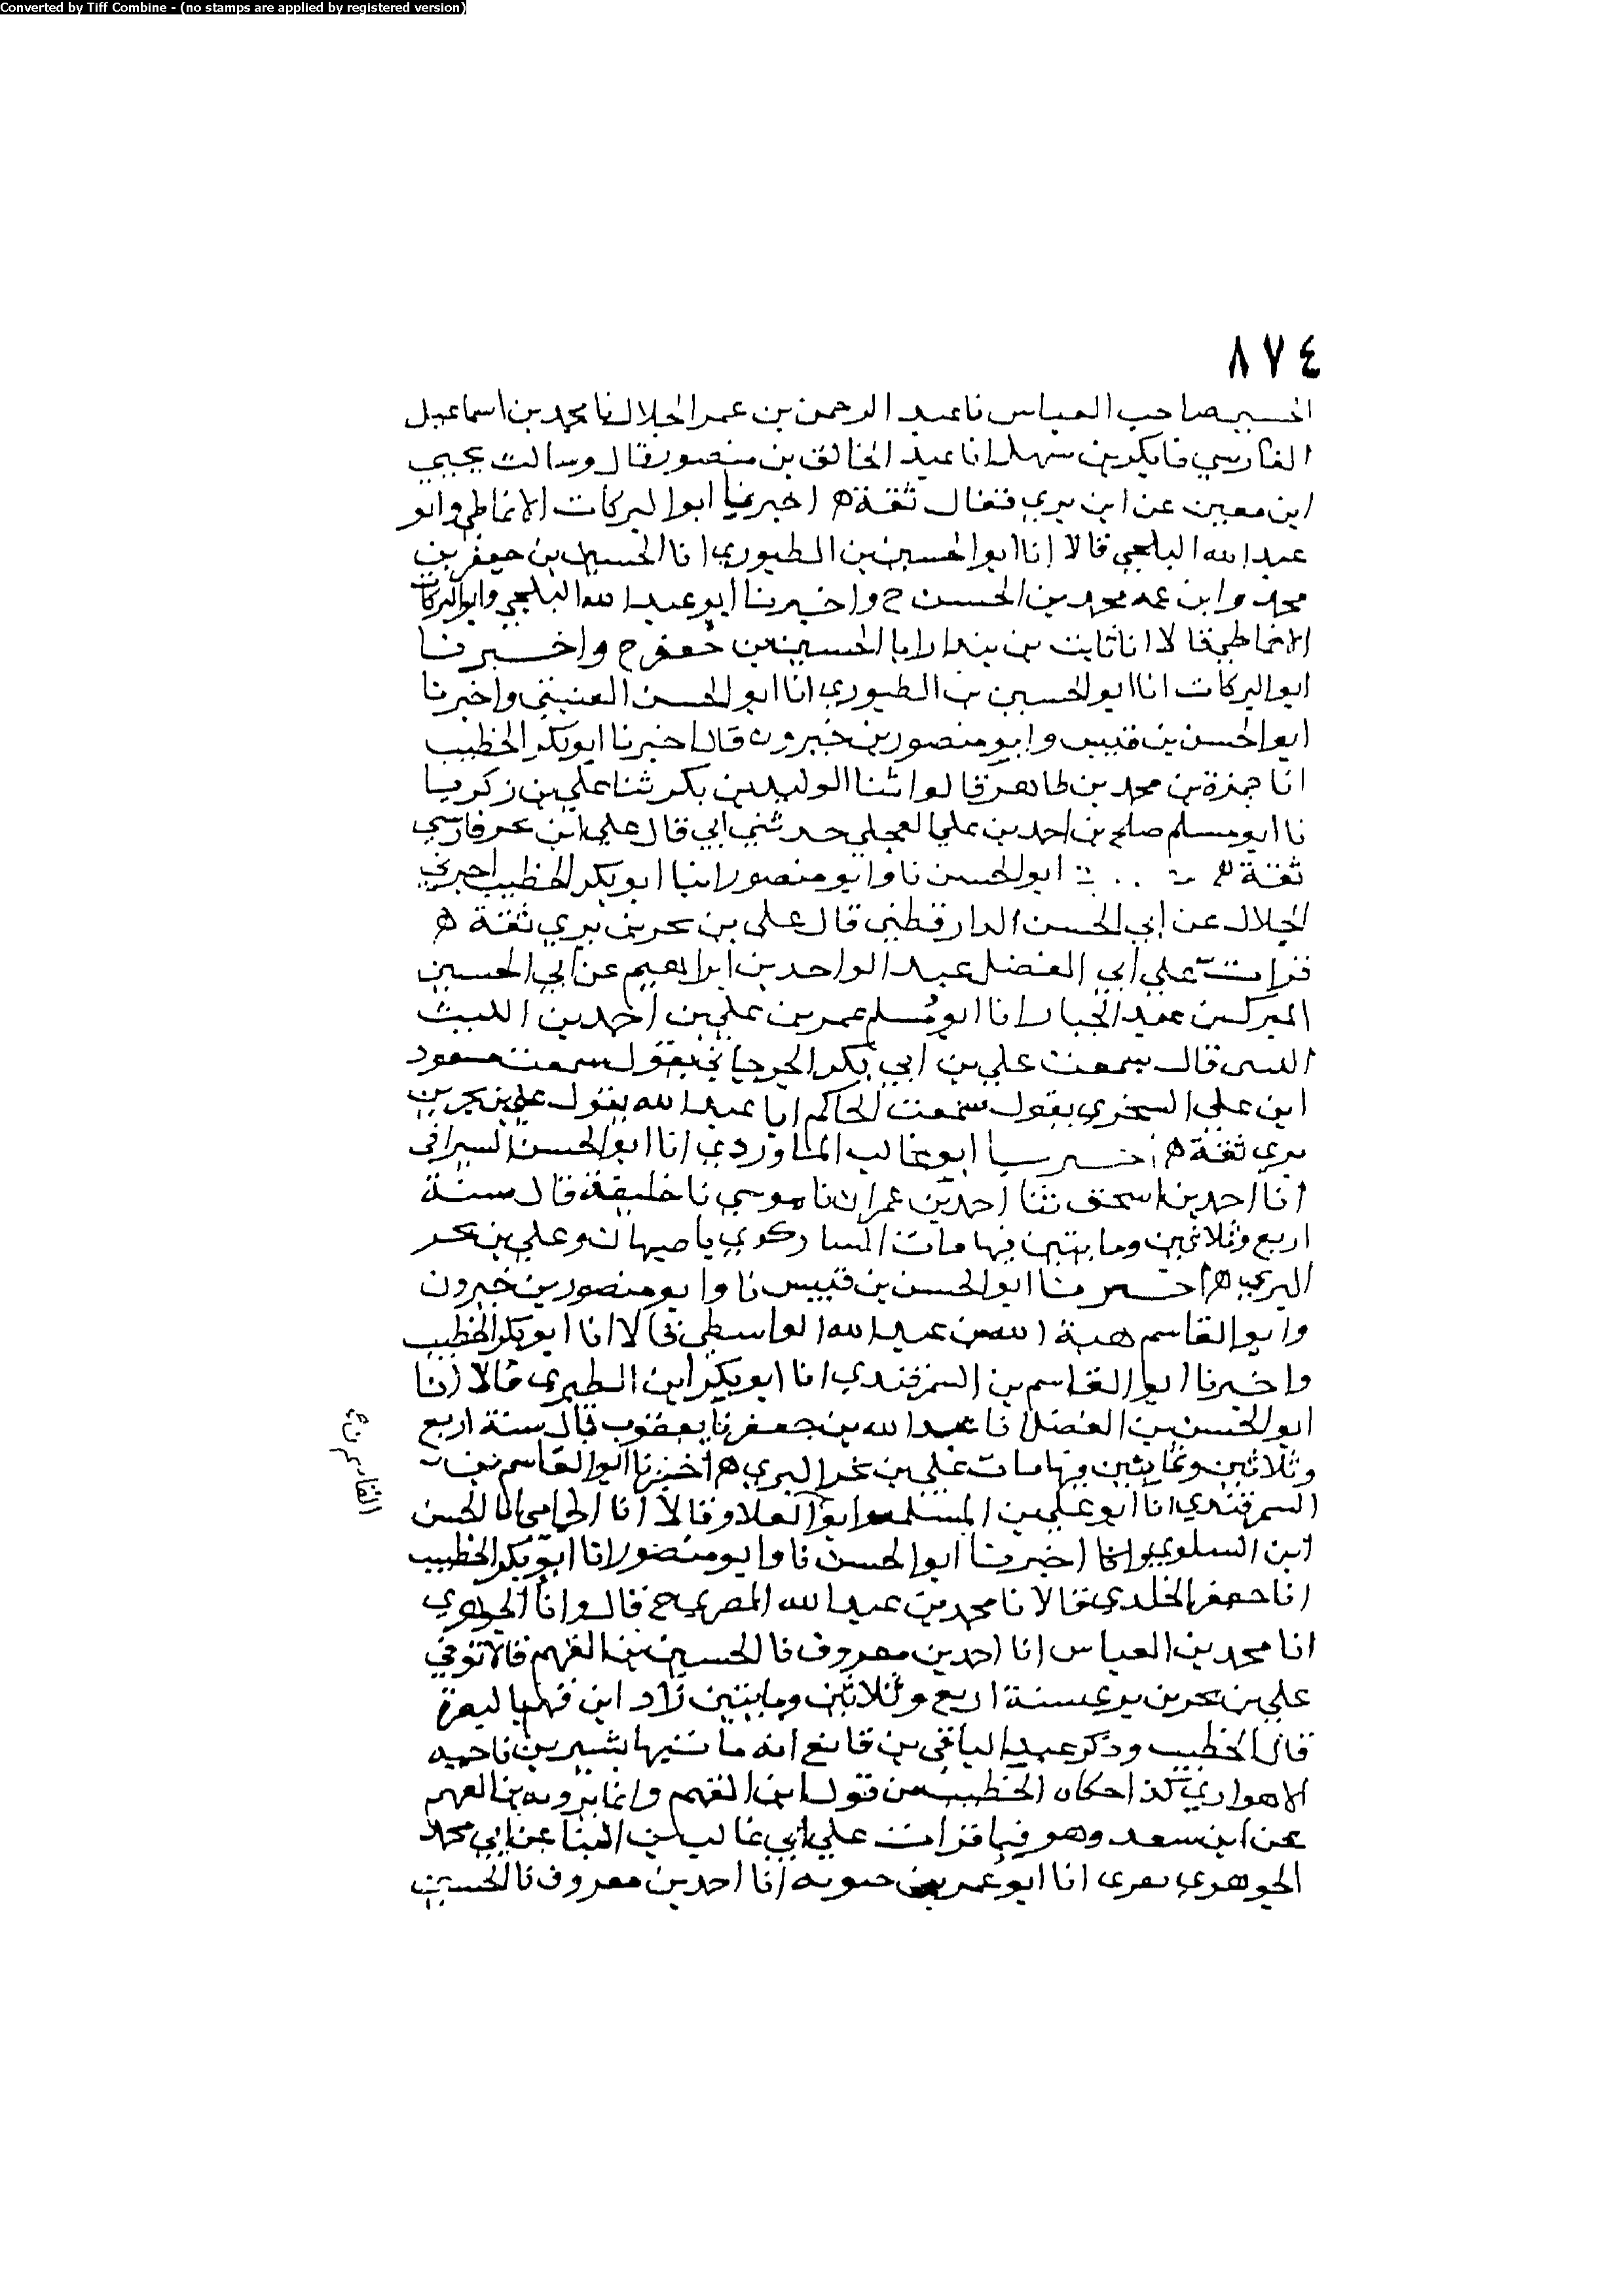 Converted by Tiff Combine - (no stamps are applied by registered version)
٨٧٤
الحسين صاحب العباس نا عبد الرحمن بن عمر الخلال نا محمد بن اسماعيل
الفارسي نا بكر بن سهل انا عبد الخالق بن منصور قال وسالت يحيى
ابن معين عن ابن بري فقال ثقة ه اخبرنا ابو البركات الانماطي وابو
عبد الله البلخي قالا انا ابو الحسين بن الطيوري انا الحسين بن جعفر بن
محمد وابن عمه محمد بن الحسن ح واخبرنا ابو عبد الله البلخي وابو البركات
الانماطي قالا انا ثابت بن بندار ابا الحسين بن جعفر ح واخبرنا
ابو البركات انا ابو الحسين بن الطيوري انا ابو الحسن العتيقي واخبرنا
ابو الحسن بن قبيس وابو منصور بن خيرون قالا اخبرنا ابو بكر الخطيب
انا حمزة بن محمد بن طاهر قالوا ثنا الوليد بن بكر ثنا علي بن زكريا
نا ابو مسلم صلح بن احمد بن علي العجلي حدثني ابي قال علي ابن بحر فارسي
ثقة ه ابو الحسن نا وابو منصور انبا ابو بكر الخطيب اخبرني
الخلال عن ابي الحسن الدارقطني قال علي بن بحر بن بري ثقة ه
قرات على ابي الفضل عبد الواحد بن ابراهيم عن ابي الحسين
المبرك بن عبد الجبار انا ابو مسلم عمر بن علي بن احمد بن الليث
الليثي قال سمعت علي بن ابي بكر الجرجاني يقول سمعت مسعود
ابن علي السجزي يقول سمعت الحاكم ابا عبد الله يقول علي بن بحر بن
بري ثقة ه اخبرنا ابو غالب الماوردي انا ابو الحسن السيرافي
انا احمد بن اسحق ثنا احمد بن عمران نا موسى نا خليفة قال سنة
اربع وثلاثين ومايتين فيها مات الشاذكوني باصبهان وعلي بن بحر
البري ه اخبرنا ابو الحسن بن قبيس نا وابو منصور بن خيرون
وابو القاسم هبة الله بن عبد الله الواسطي قالا انا ابو بكر الخطيب
واخبرنا ابو القاسم بن السمرقندي انا ابو بكر ابن الطبري قالا انا
ابو الحسين بن الفضل انا عبد الله بن جعفر نا يعقوب قال سنة اربع
وثلاثين ومايتين فيها مات علي بن بحر البري ه اخبرنا ابو القاسم بن
السمرقندي انا ابو علي بن المسلمة وابو العلاء قالا انا الحمامي انا الحسن
ابن السلوي انا اخبرنا ابو الحسن نا وابو منصور انا ابو بكر الخطيب
انا جعفر الخلدي قالا نا محمد بن عبد الله الحضرمي ح قال وانا الجوهري
انا محمد بن العباس انا احمد بن معروف نا الحسين بن الفهم قالا توفي
علي بن بحر بن بري سنة اربع وثلاثين ومايتين زاد ابن فهم بالبصرة
قال الخطيب وذكر عبد الباقي بن قانع انه مات بشير بن ناحيه
الاهواز كذا حكاه الخطيب من قول ابن الفهم وانما يرويه بن الفهم
عن ابن سعد وهو فيما قرات على ابي غالب بن البنا عن ابي محمد
الجوهري انا ابو عمر بن حيويه انا احمد بن معروف نا الحسين